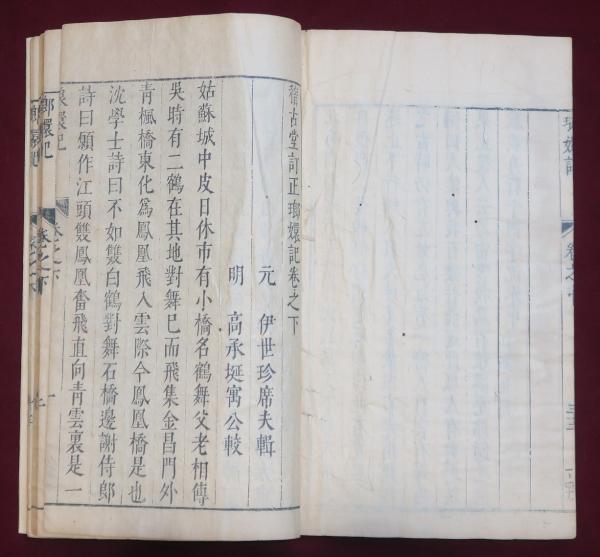 瑯嬛記
卷之下
稽古堂訂正瑯嬛記卷之下
元 伊世珍席夫輯
明 高承埏寓公較
姑蘇城中皮日休市有小橋名鶴舞父老相傳
吳時有二鶴在其地對舞巳而飛集金昌門外
青楓橋東化爲鳳凰飛入雲際今鳳凰橋是也
沈學士詩曰不如雙白鶴對舞石橋邊謝侍郞
詩曰願作江頭雙鳳凰奮飛直向青雲裏是一
嬛記
卷之下
一